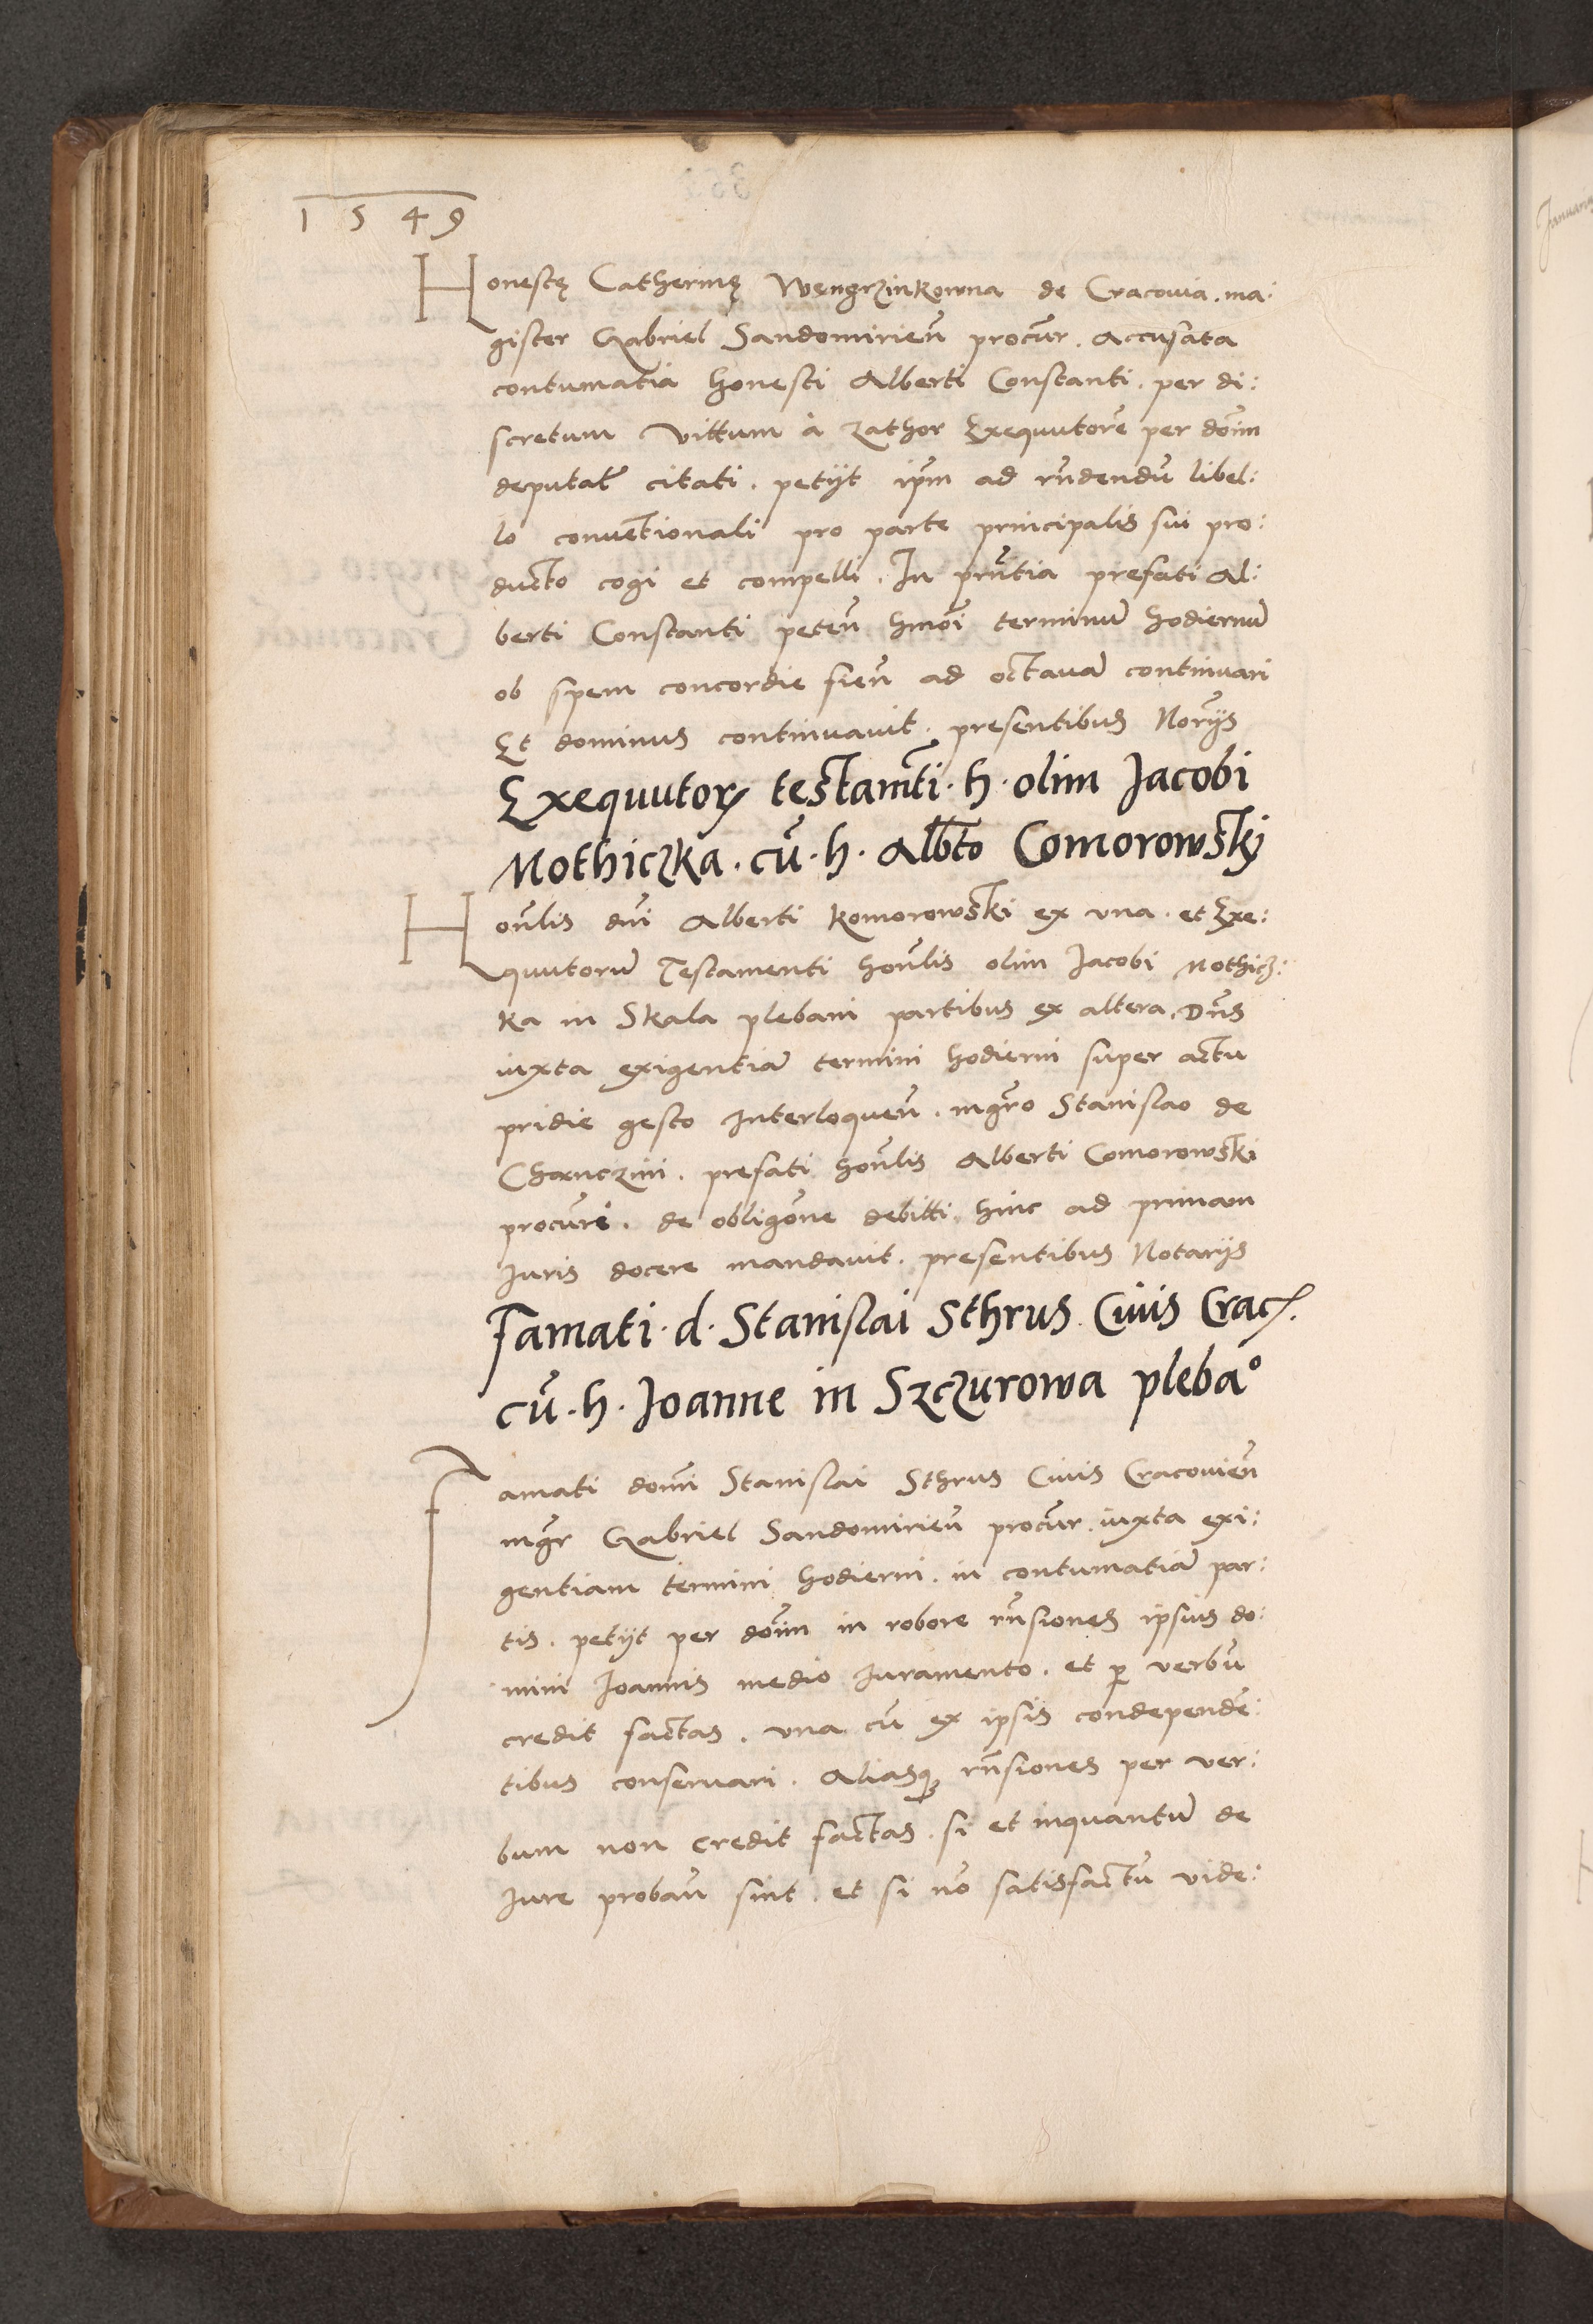 1549
Honestę Catherinę Wengrzinkowna de Cracovia. ma:
gister Gabriel Sandomirieñ procur̃. Accusata
contumatia honesti Alberti Constanti. per di:
scretum Vittum à Zathor Exequutorẽ per dom̃
deputat̃ citati. petijt ip̃m ad rñdendũ libel:
lo conuẽtionali pro parte principalis sui pro:
ducto cogi et compelli. In prñtia prefati Al:
berti Constanti peteñ hmõi terminũ hodiernũ
ob spem concordie fieñ ad octauã continuari
Et dominus continuauit. presentibus Nor̃ijs
Exequutorꝝ testam̃ti. h. olim Jacobi
Nothiczka. cũ. h. Alb̃to Comorowskj
Honl̃is dñi Alberti Komorowski ex vna. et Exe:
quutorũ Testamenti honl̃is olim Jacobi Nothicz:
ka in Skala plebani partibus ex altera. Dñs
iuxta exigentiã termini hodierni super actu
pridie gesto Interloqueñ. mgr̃o Stanislao de
Chanczini. prefati honl̃is Alberti Comorowski
procur̃i. de obligõne debitti hinc ad primam
Juris docere mandauit. presentibus Notarijs
Famati. d. Stanislai Sthrus Ciuis Crac.
cũ. h. Joanne in Szczurowa plebaº
Famati domĩ Stanislai Sthrus Ciuis Cracouieñ
mgr̃ Gabriel Sandomirieñ procur̃. iuxta exi:
gentiam termini hodierni. in contumatiã par:
tis. petijt per dom̃ in robore rñsiones ipsius do:
mini Joannis medio Juramento. et ꝑ verbũ
credit factas. vna cũ ex ipsis condependẽ:
tibus conseruari. Aliasqꝫ rñsiones per ver:
bum non credit factas. si et inquantũ de
Jure probañ sint. et si nõ satisfactũ vide: